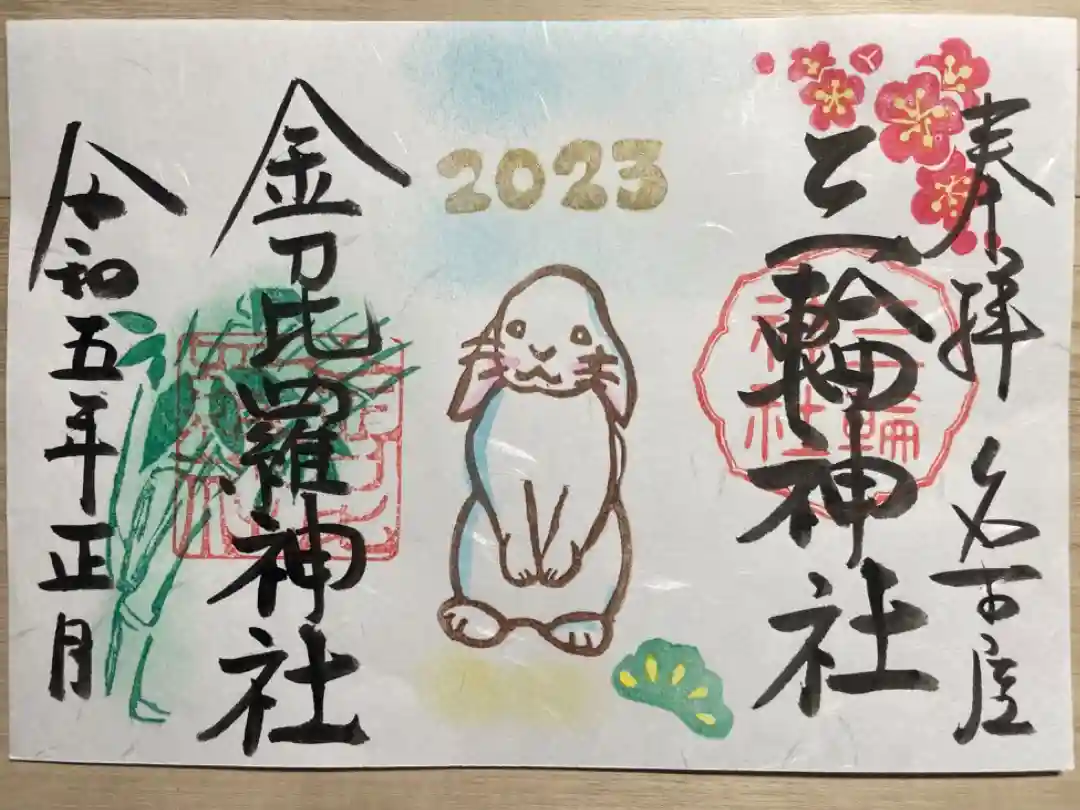 奉拝 名古屋
三輪神社
三輪神社
2023
金刀毘羅神社
令和五年正月